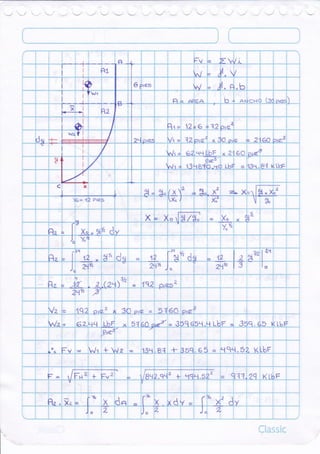 Fv = ΣWi
W = γ.V
W = γ.A.b
A = AREA , b = ANCHO (30 pies)
A
A1
W1
6 pies
B
A2
W2
dy
24 pies
y
C
x
X₀ = 12 PIES
A1 = 12x6 = 72 pie²
V1 = 72 pie² x 30 pie = 2160 pie³
W1 = 62.44 LbF/pie³ x 2160 pie³
W1 = 134870.40 LbF = 134.87 KLbF
X = X₀√(y/y₀) = X₀/y₀^½ . y^½
A2 = ∫ X₀/y₀^½ y^½ dy
A2 = ∫₀²⁴ 12/24^½ . y^½ dy = 12/24^½ ∫₀²⁴ y^½ dy = 12/24^½ [2/3 y^3/2]₀²⁴
A2 = 12/24^½ . 2/3 (24)^3/2 = 192 pies²
V2 = 192 pie² x 30 pie = 5760 pie³
W2 = 62.44 LbF/pie³ x 5760 pie³ = 359654.4 LbF = 359.65 KLbF
∴ Fv = W1 + W2 = 134.87 + 359.65 = 494.52 KLbF
F = √(FH² + Fv²) = √(842.94² + 494.52²) = 977.29 KLbF
A2 . X₂ = ∫ x/2 dA = ∫ x/2 . x dy = ∫ x²/2 dy
Classic